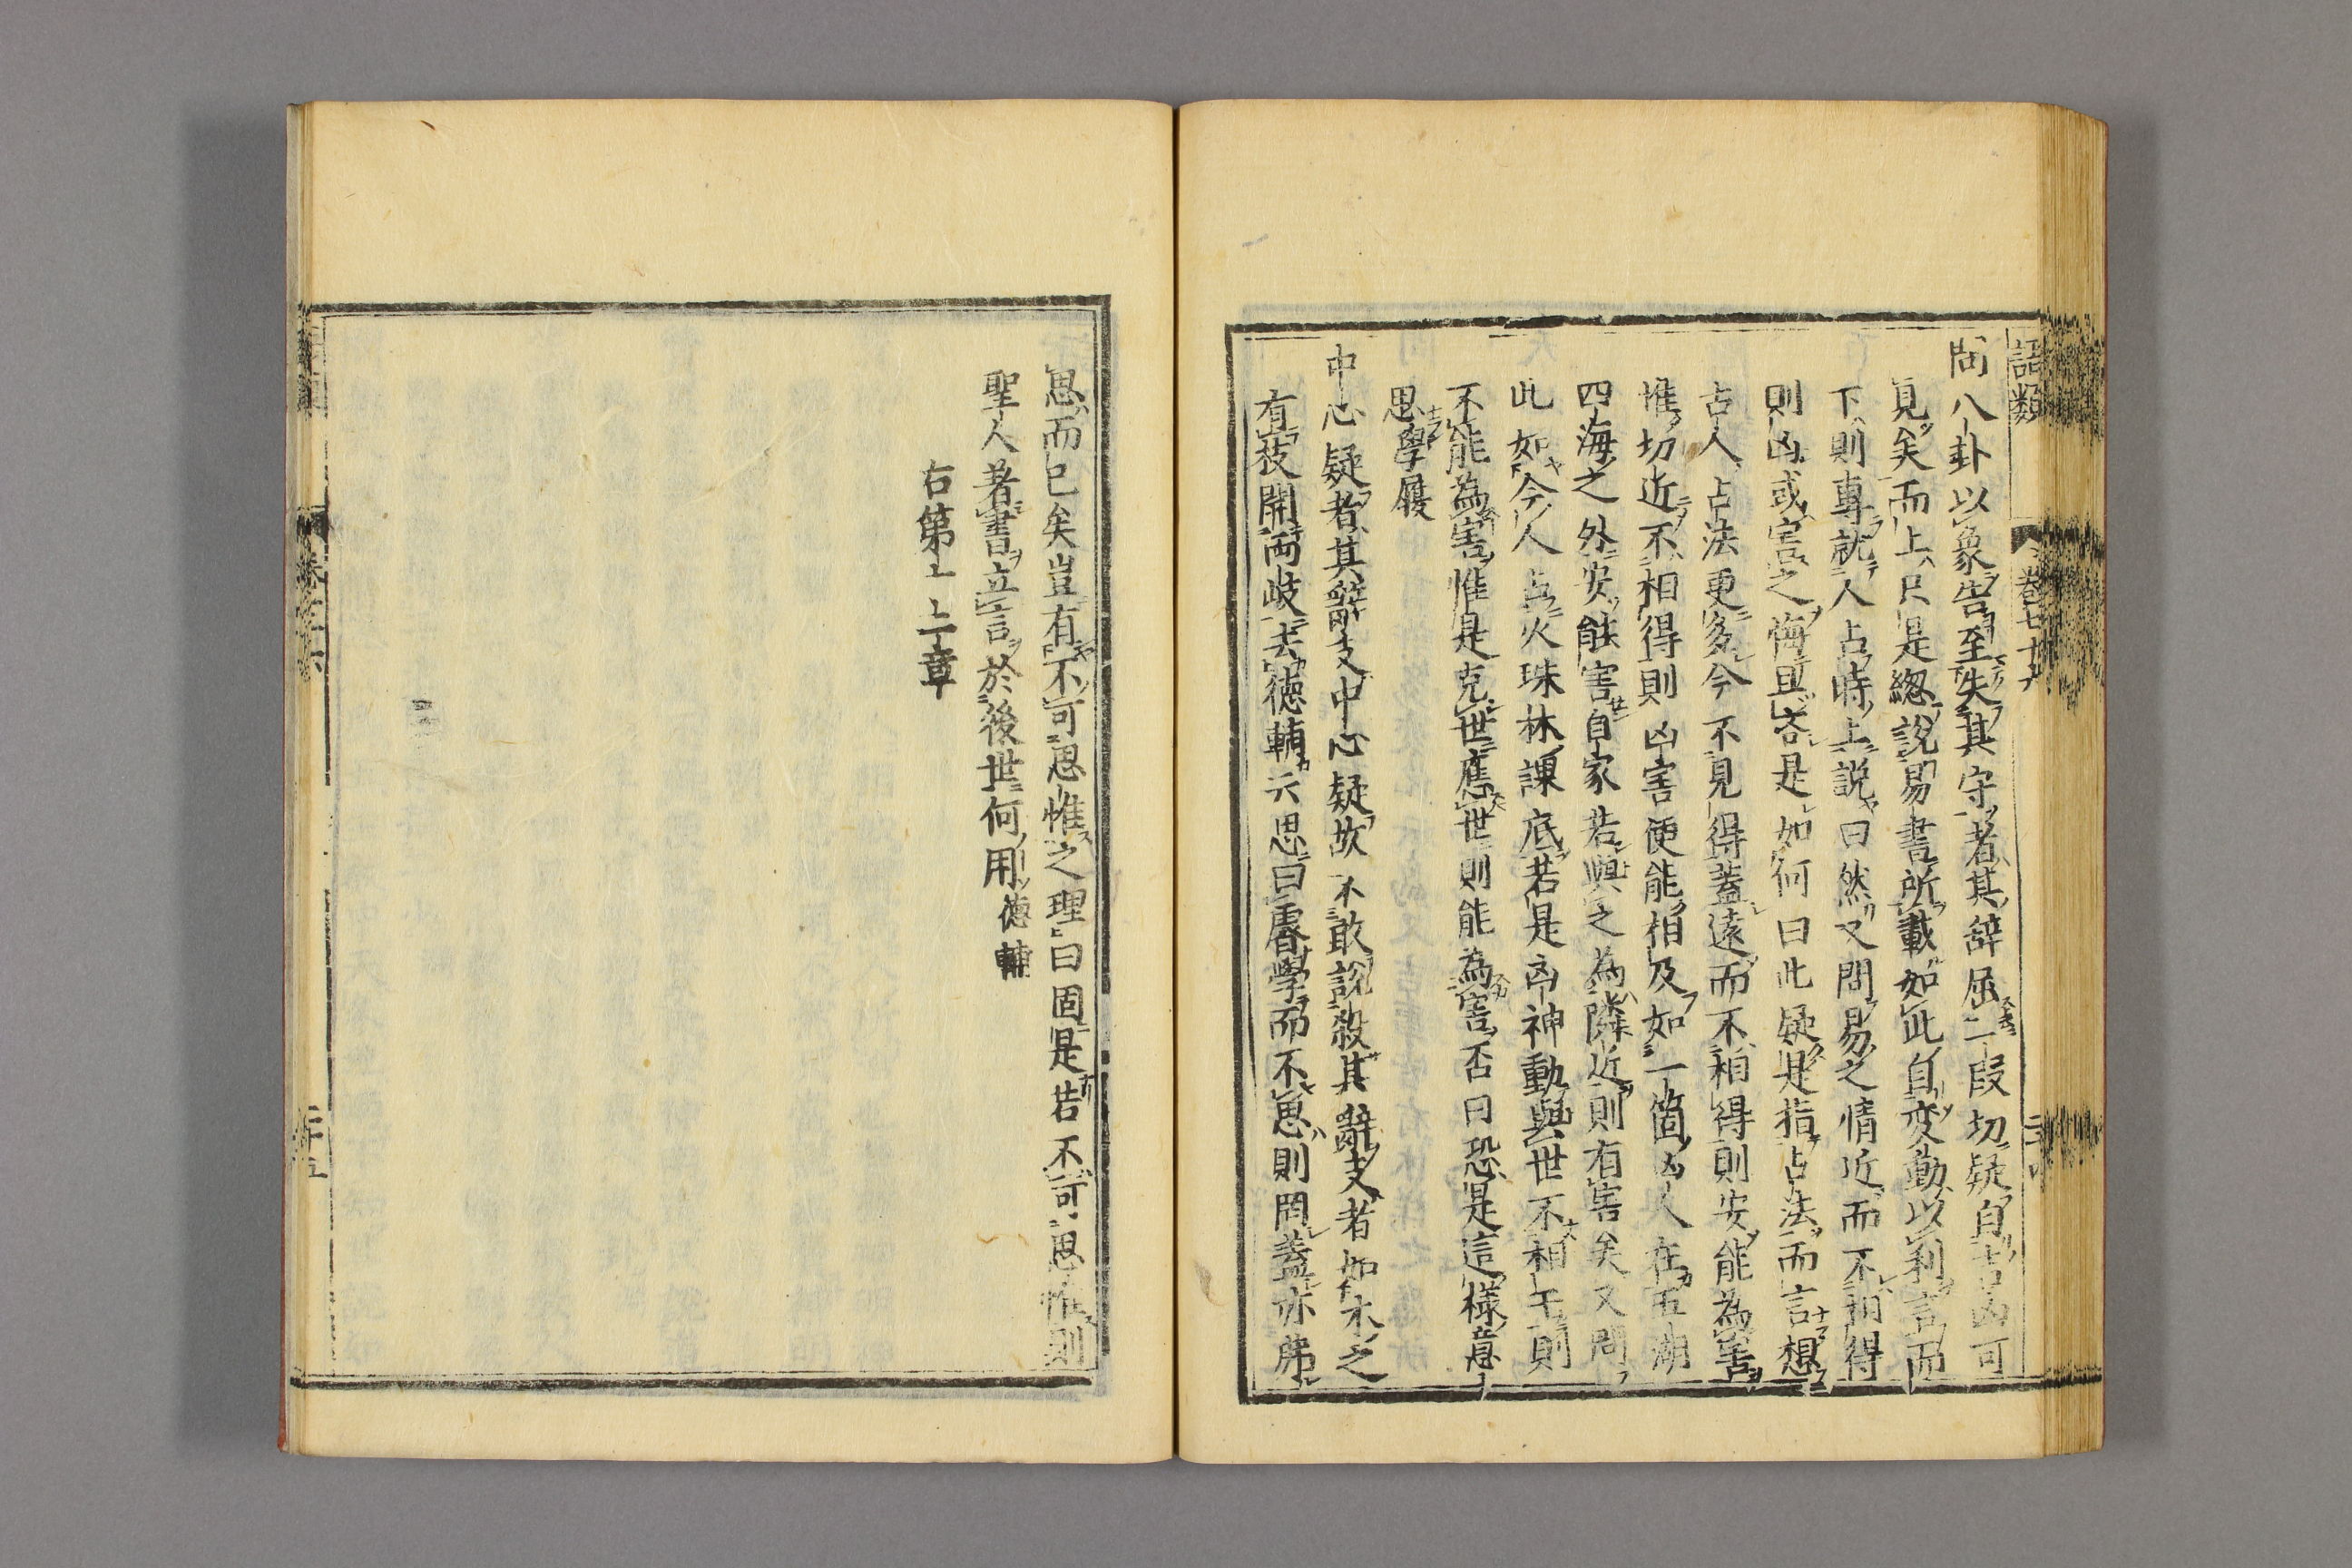 語類
卷七十六
問八卦以象告至失其守者其辭屈二段切疑自吉凶可
見矣而上只是緫說易書所載如此自変動以利言而
下則專就人占時上説曰然又問易之情近而不相得
則凶或害之悔且吝是如何曰此疑是指占法而言想
古人占法更多今不見得蓋遠而不相得則安能為害
惟切近不相得則凶害便能相及如一箇凶人在五湖
四海之外安能害自家若與之為隣近則有害矣又問
此如今人占火珠林課底若是凶神動與世不相干則
不能為害惟是克世應世則能為害否曰恐是這樣意
思學履
中心疑者其辭支中心疑故不敢說殺其辭支者如木之
有枝開両岐去德輔云思曰睿學而不思則罔蓋亦弗
思而已矣豈有不可思惟之理曰固是若不可思惟則
聖人著書立言於後世何用德輔
右第十二章
二十五